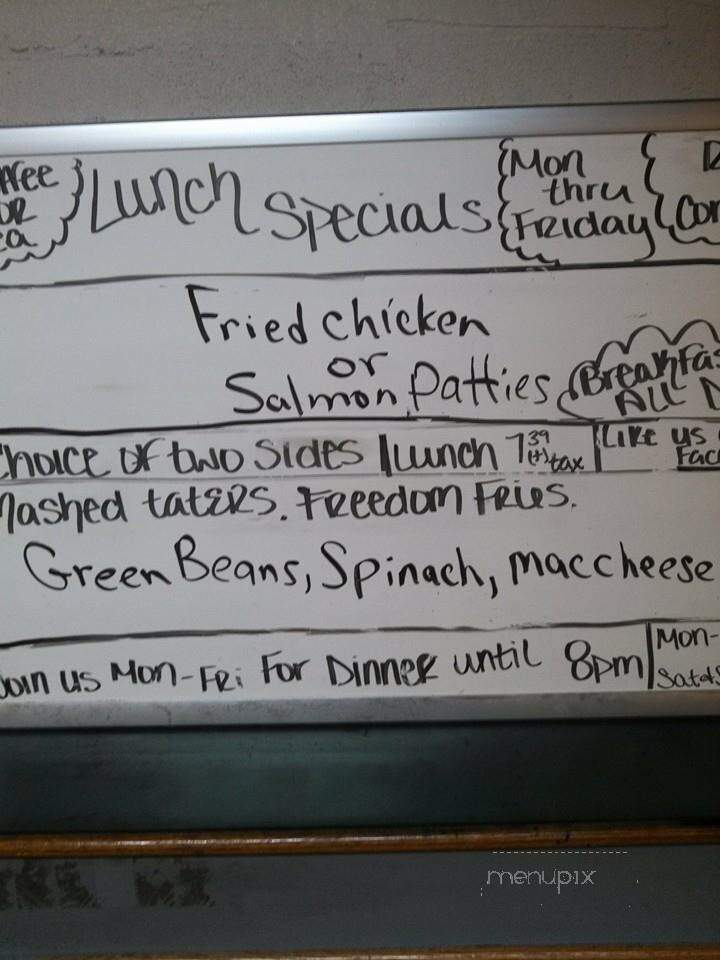 Lunch Specials
Mon
thru
Friday
OR
Fried chicken
or
Salmon Patties
ALL
choice of two sides
Lunch 7 39 (+) tax
Like us
Mashed taters. Freedom Fries.
Green Beans, Spinach, maccheese
Join us Mon-Fri For Dinner until 8pm
Mon-
menupix